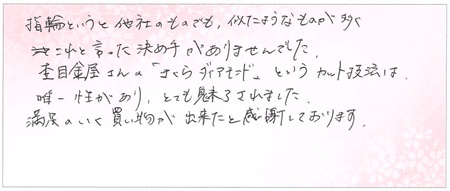 指輪というと他社のものでも、似たようなものが多く
これと言った決め手がありませんでした。
杢目金屋さんの「さくらダイアモンド」というカット技法は、
唯一性があり、とても魅了されました。
満足のいく買い物が出来たと感謝しております。